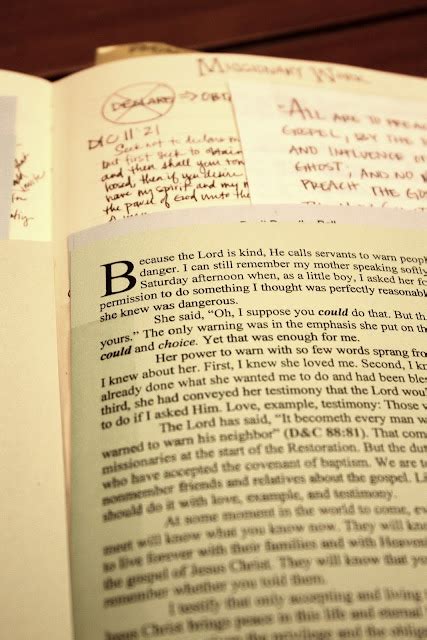 MISSIONARY WORK
DECLARE ⇒ OBT
D&C 11:21
Seek not to declare m
but first seek to obtain
and then shall your ton
loosed, then if you desire
have my spirit and my w
the power of God unto the
"ALL ARE TO PREAC
GOSPEL, BY THE
AND INFLUENCE OF
GHOST; AND NO
PREACH THE GOS
Because the Lord is kind, He calls servants to warn peopl
danger. I can still remember my mother speaking softly
Saturday afternoon when, as a little boy, I asked her fo
permission to do something I thought was perfectly reasonabl
she knew was dangerous.
She said, "Oh, I suppose you could do that. But th
yours." The only warning was in the emphasis she put on th
could and choice. Yet that was enough for me.
Her power to warn with so few words sprang fro
I knew about her. First, I knew she loved me. Second, I kn
already done what she wanted me to do and had been bles
third, she had conveyed her testimony that the Lord wou
to do if I asked Him. Love, example, testimony: Those w
The Lord has said, "It becometh every man w
warned to warn his neighbor" (D&C 88:81). That com
missionaries at the start of the Restoration. But the du
who have accepted the covenant of baptism. We are to
nonmember friends and relatives about the gospel. Li
should do it with love, example, and testimony.
At some moment in the world to come, ev
meet will know what you know now. They will kno
to live forever with their families and with Heaven
the gospel of Jesus Christ. They will know that yo
remember whether you told them.
I testify that only accepting and living
Jesus Christ brings peace in this life and eternal